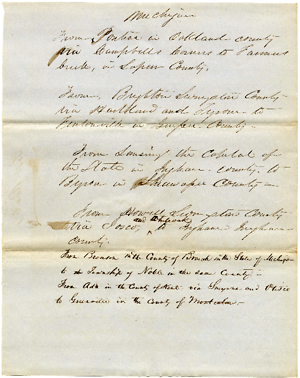 Michigan
From Pontiac in Oakland county
via Campbells Corners to Farmers
Creek, in Lapeer County.
From Brighton Livingston County
via Hartland and Tyrone to
in County
From Lansing the capital of
the State in Ingham county, to
Byron in Shiawassee County
From Howell Livingston County
via Iosco, and to Ingham Ingham
county.
From Bronson in the County of Branch in the State of Michigan
to the Township of Noble in the same County
From Ada in the County of Kent via Smyrna and Otisco
to Greenville in the County of Montcalm